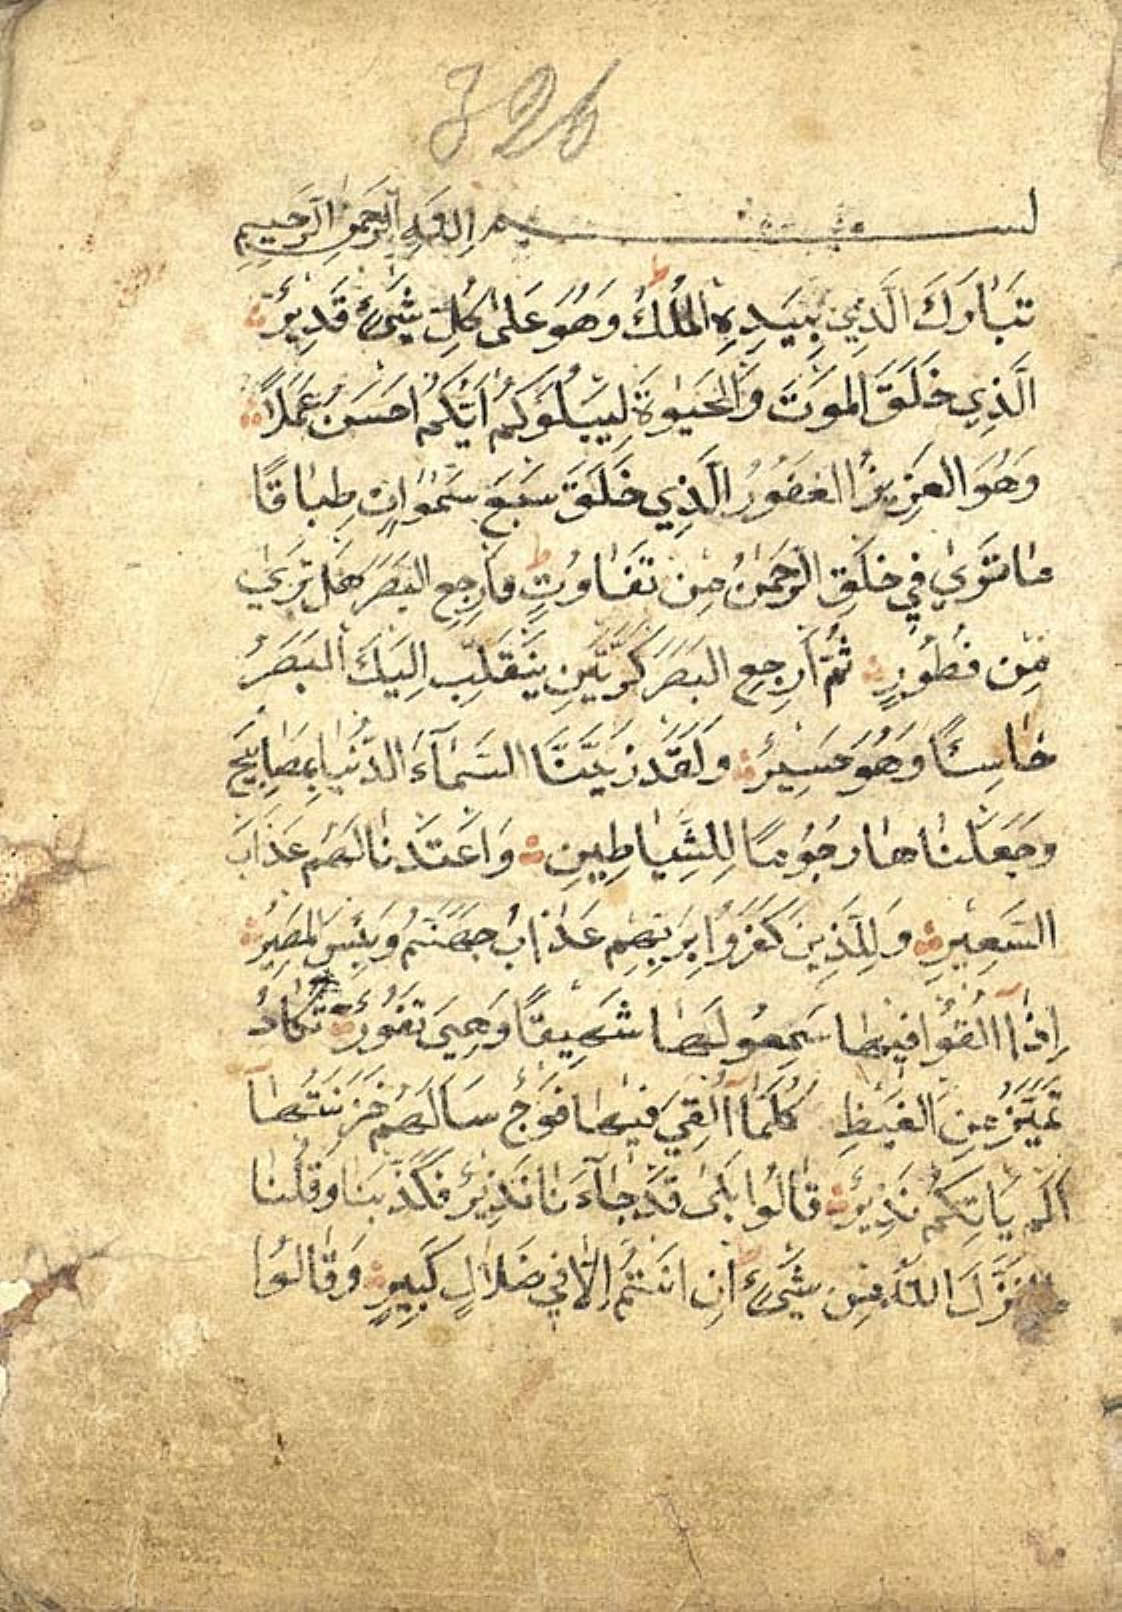 326
بسم الله الرحمن الرحيم
تَبَارَكَ الَّذِي بِيَدِهِ الْمُلْكُ وَهُوَ عَلىٰ كُلِّ شَيْءٍ قَدِيرٌ
الَّذِي خَلَقَ الْمَوْتَ وَالْحَيٰوةَ لِيَبْلُوَكُمْ أَيُّكُمْ أَحْسَنُ عَمَلًا
وَهُوَ الْعَزِيزُ الْغَفُورُ الَّذِي خَلَقَ سَبْعَ سَمٰوَاتٍ طِبَاقًا
مَا تَرىٰ فِي خَلْقِ الرَّحْمٰنِ مِنْ تَفَاوُتٍ فَارْجِعِ الْبَصَرَ هَلْ تَرىٰ
مِنْ فُطُورٍ ثُمَّ ارْجِعِ الْبَصَرَ كَرَّتَيْنِ يَنْقَلِبْ إِلَيْكَ الْبَصَرُ
خَاسِئًا وَهُوَ حَسِيرٌ وَلَقَدْ زَيَّنَّا السَّمَآءَ الدُّنْيَا بِمَصَابِيحَ
وَجَعَلْنَاهَا رُجُومًا لِلشَّيَاطِينِ وَاَعْتَدْنَا لَهُمْ عَذَابَ
السَّعِيرِ وَلِلَّذِينَ كَفَرُوا بِرَبِّهِمْ عَذَابُ جَهَنَّمَ وَبِئْسَ الْمَصِيرُ
إِذَآ اُلْقُوا فِيهَا سَمِعُوا لَهَا شَهِيقًا وَهِيَ تَفُورُ تَكَادُ
تَمَيَّزُ مِنَ الْغَيْظِ كُلَّمَآ اُلْقِيَ فِيهَا فَوْجٌ سَاَلَهُمْ خَزَنَتُهَآ
اَلَمْ يَاْتِكُمْ نَذِيرٌ قَالُوا بَلىٰ قَدْ جَآءَنَا نَذِيرٌ فَكَذَّبْنَا وَقُلْنَا
نَزَّلَ اللّٰهُ مِنْ شَيْءٍ اِنْ اَنْتُمْ إِلَّا فِي ضَلَالٍ كَبِيرٍ وَقَالُوا